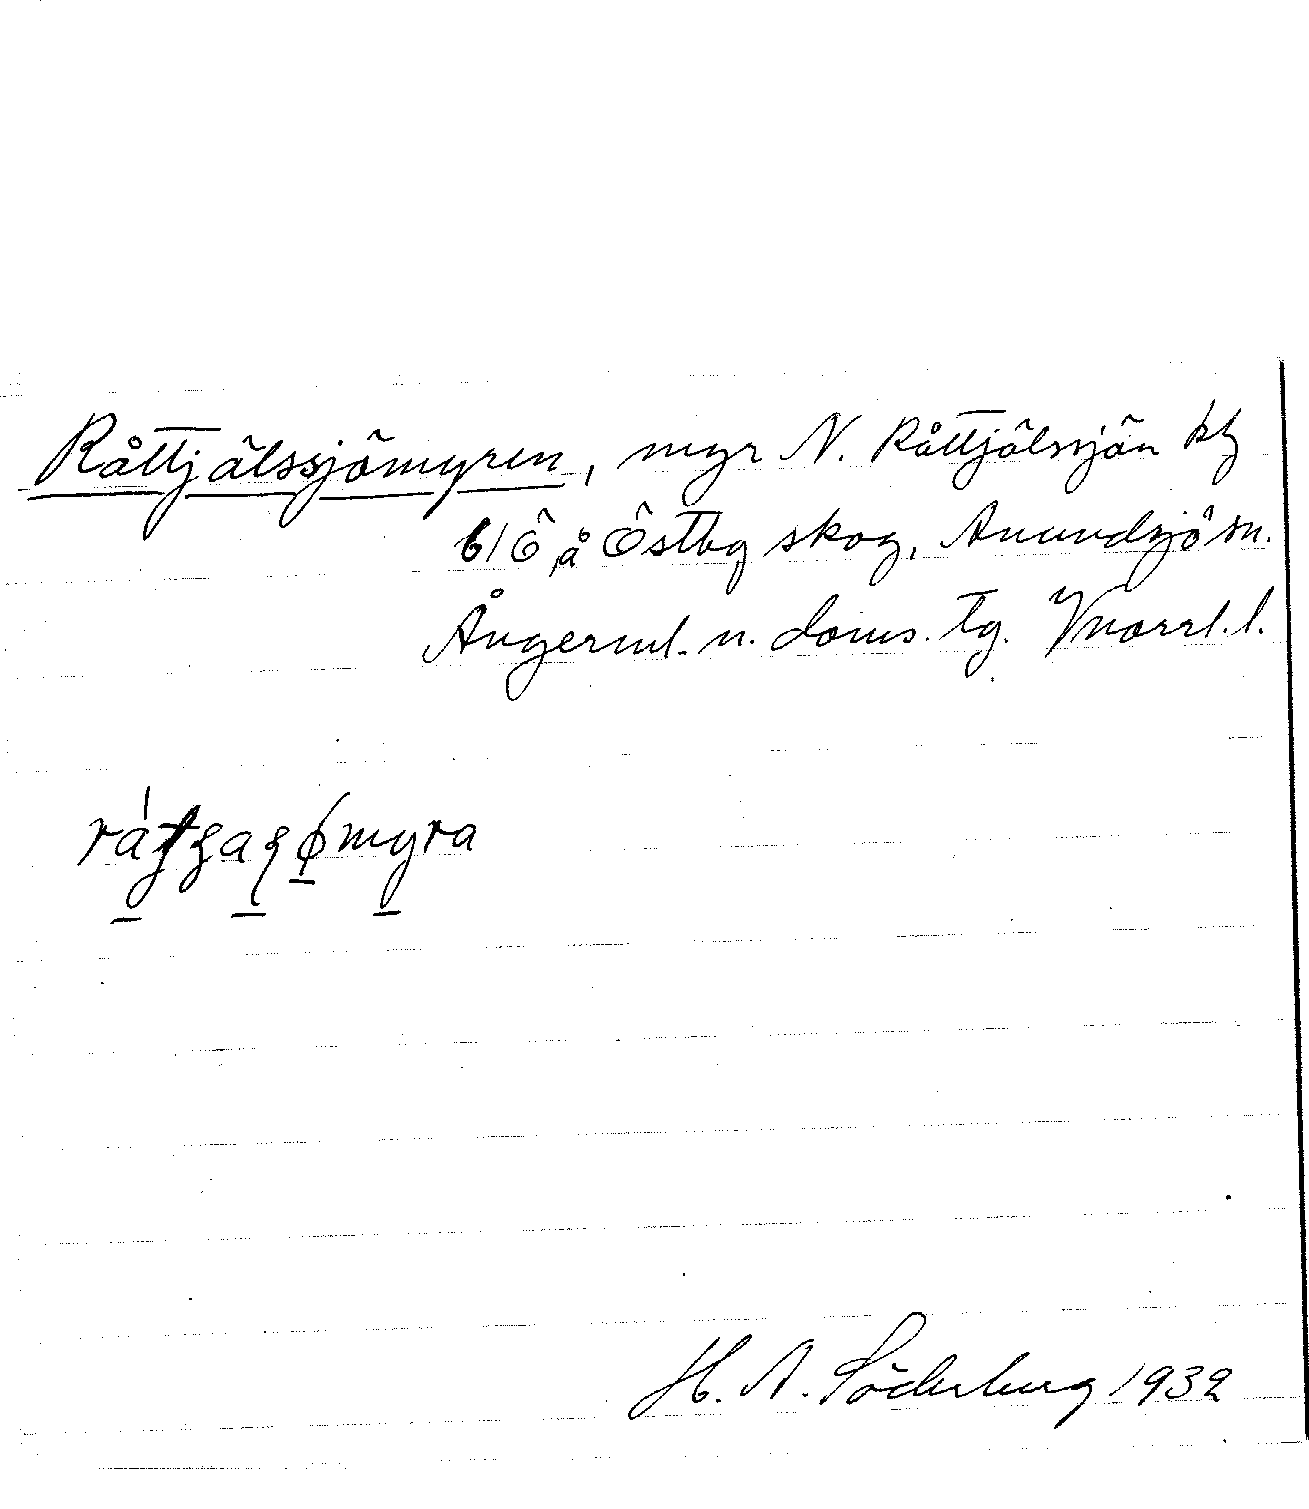 Råttjälssjömyren, myr N. Råttjälssjön kbl
61Ö å Östbg skog, Anundsjö sn.
Ångerml. n. doms. tg. Vnorrl. l.
myra
H. A. Söderberg 1932